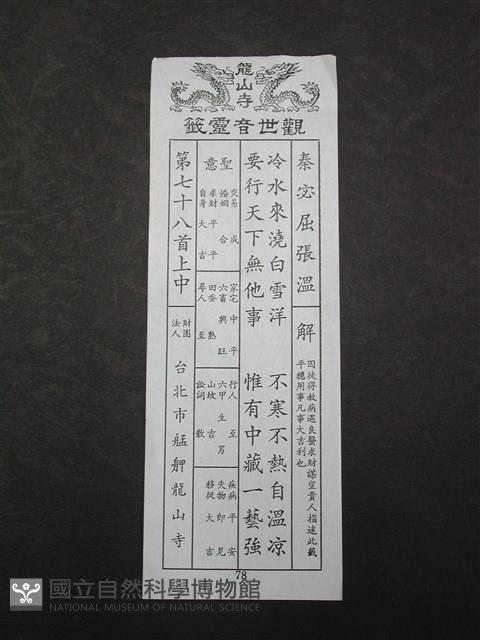 龍山寺
觀世音靈籤
秦宓屈張溫
解
囚徒得赦病遇良醫求財謀望貴人指述此籤
平穩用事凡事大吉利也
冷水來澆白雪洋 不寒不熱自溫凉
要行天下無他事 惟有中藏一藝強
聖意
交易 成
婚姻 合
求財 平平
自身 大吉
家宅 中平
六畜 興旺
田蚕 熟
尋人 至
行人 至
六甲 生男
山坟 吉
訟詞 散
疾病 平安
失物 即見
移徙 大吉
第七十八首上中
財團法人 台北市艋舺龍山寺
78
國立自然科學博物館
NATIONAL MUSEUM OF NATURAL SCIENCE